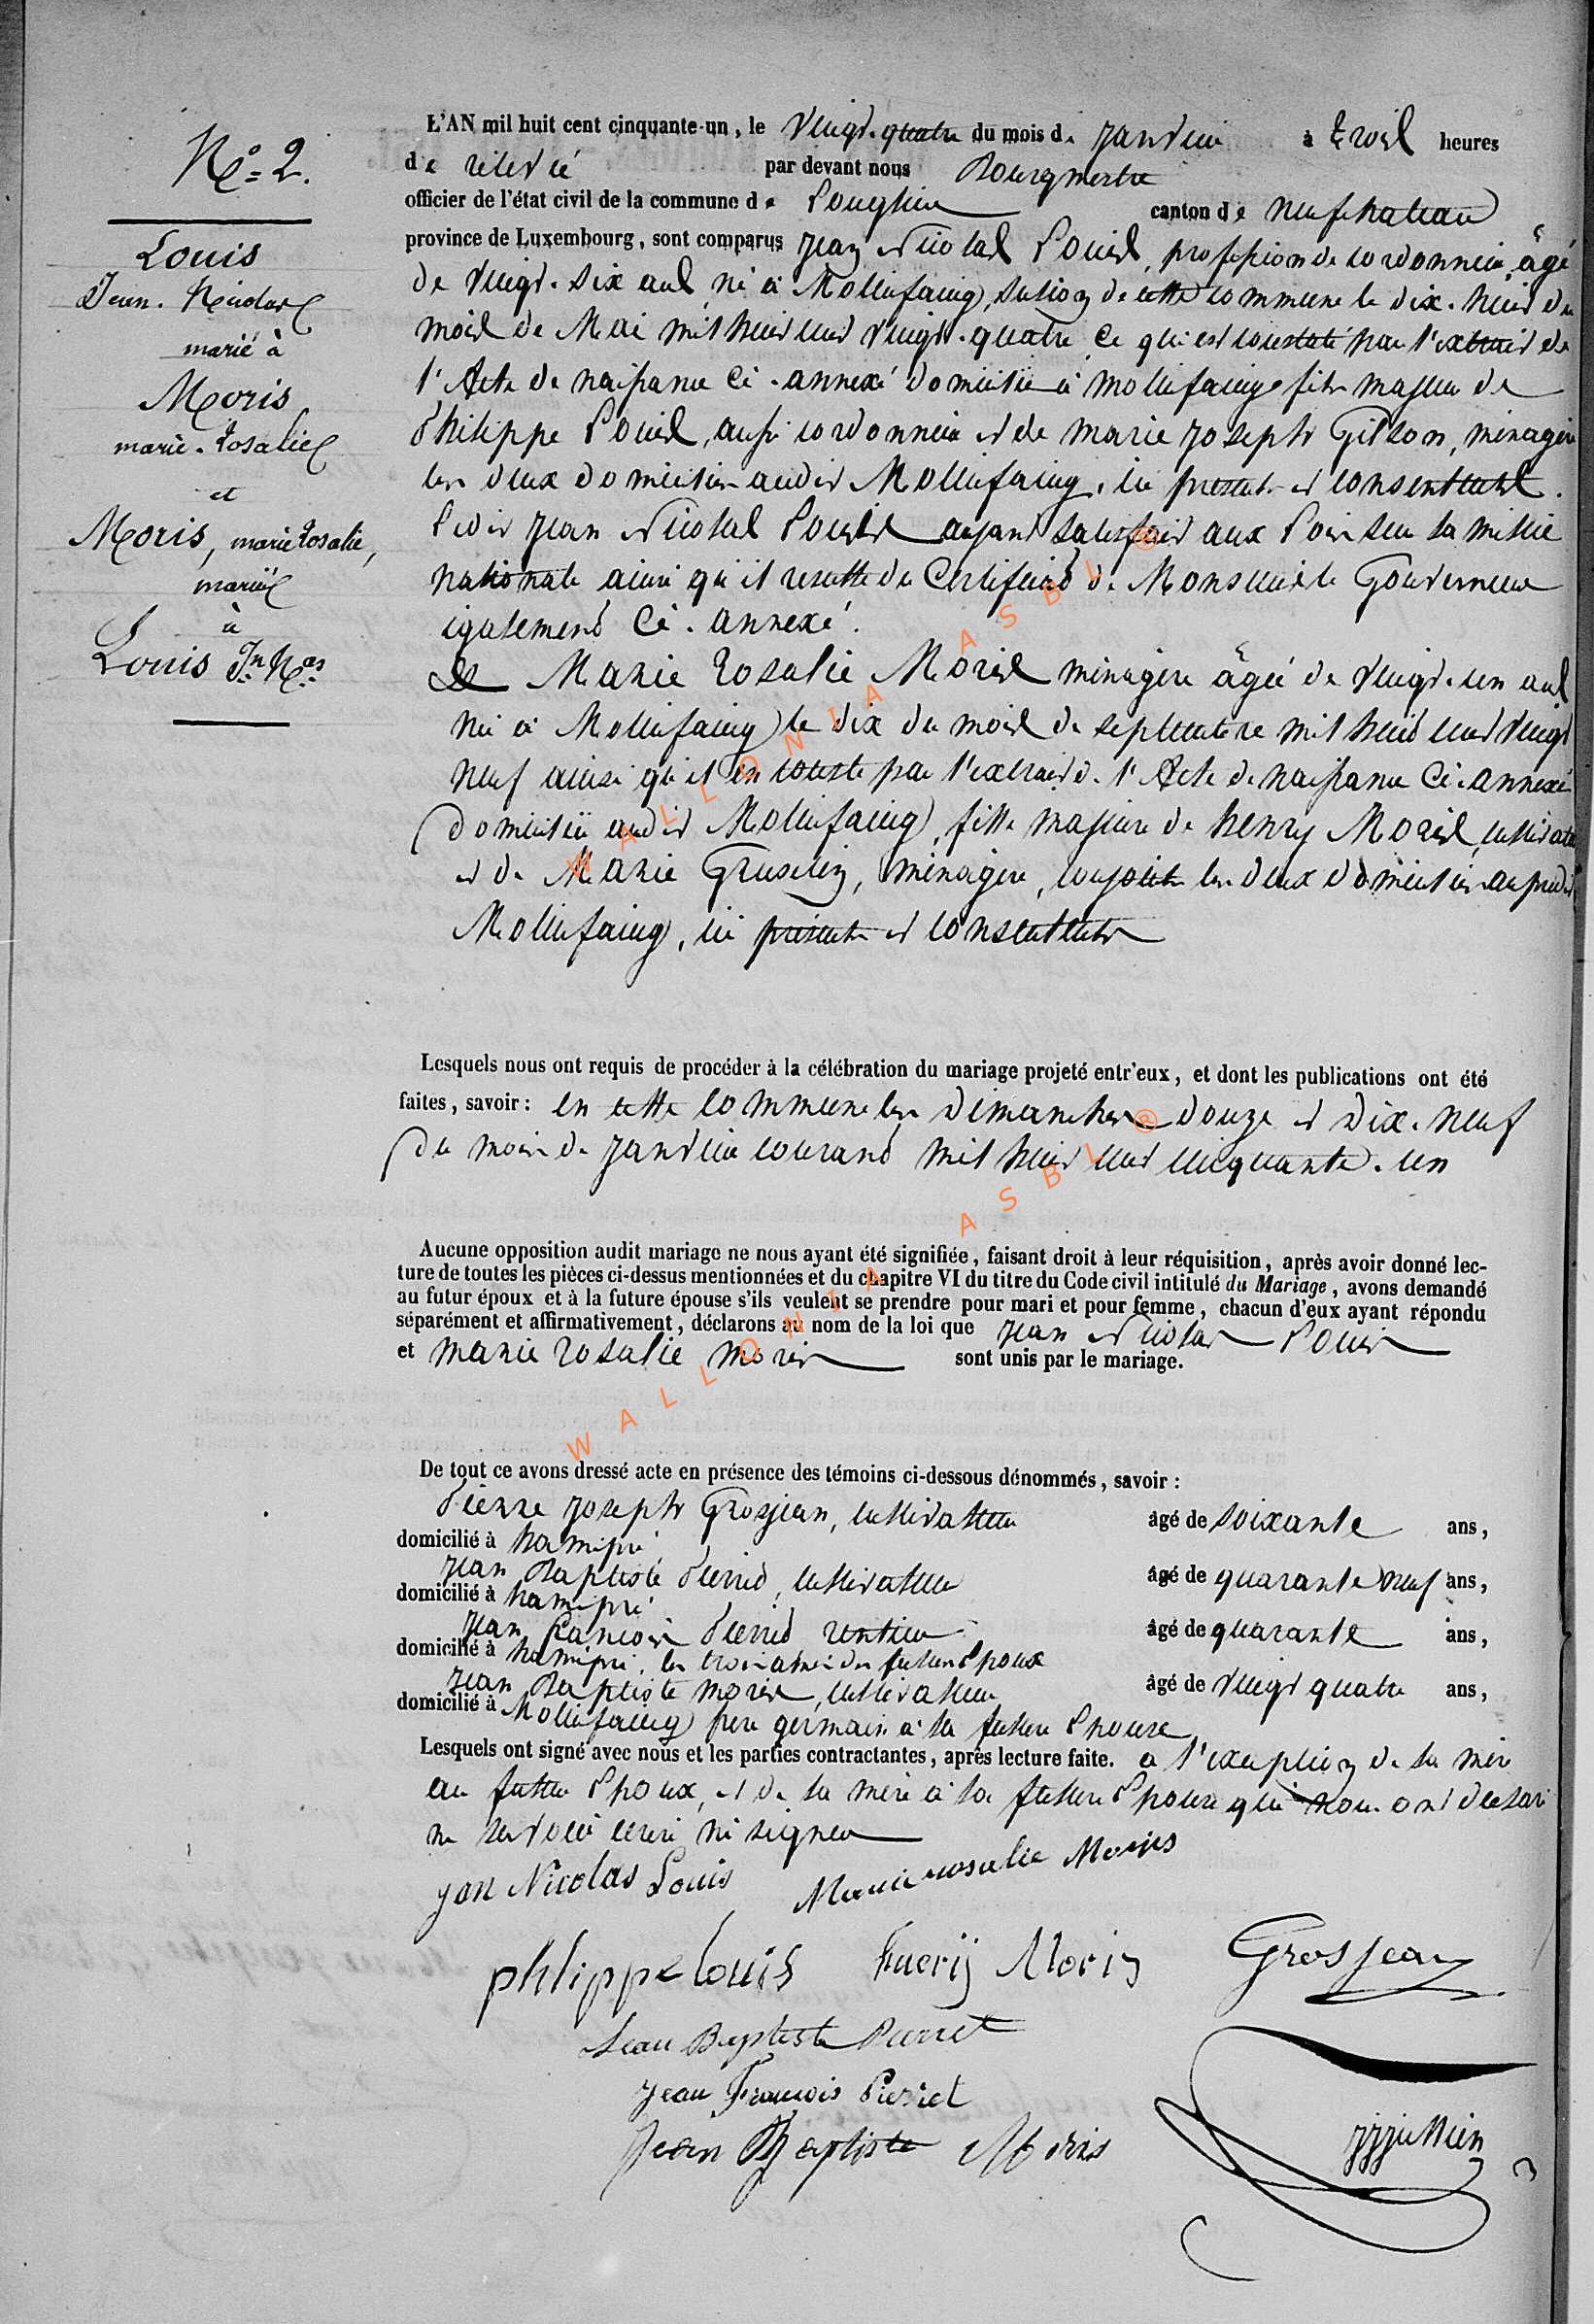 N.º=2.
Louis
Jean. Nicolas
marié à
Moris
marie. Rosalie
et
Moris, marie Rosalie,
mariée
à
Louis Jn. Nas.
L'AN mil huit cent cinquante-un, le vingt-quatre du mois de janvier à trois heures
de relevé par devant nous Bourgmestre
officier de l'état civil de la commune de Longlier canton de neufchateau
province de Luxembourg, sont comparus Jean Nicolas Louis, profession de cordonnier, âgé
de vingt-six ans, né à Mollinfaing, section de cette commune le dix-huit du
mois de Mai mil huit cent vingt-quatre ce qui est constaté par l'extrait de
l'Acte de naissance ci-annexé domicilié à mollinfaing fils majeur de
Philippe Louis, aussi cordonnier et de marie joseph Gilson, ménagère
les deux domiciliés audit Mollinfaing, ici présents et consentants.
Ledit Jean Nicolas Louis ayant satisfait aux Lois sur la milice
nationale ainsi qu'il resulte du Certificat de Monsieur le Gouverneur
également Ci-annexé.
Et Marie Rosalie Moris ménagère âgée de vingt-un ans
née à Mollinfaing le dix du mois de septembre mil huit cent vingt
neuf ainsi qu'il en conste par l'extrait de l'Acte de naissance Ci-annexé
domiciliée audit Mollinfaing, fille majeure de henry Moris, cultivateur
et de Marie Gruselin, ménagère, conjoints les deux domiciliés au predit
Mollinfaing, ici présents et consentants
Lesquels nous ont requis de procéder à la célébration du mariage projeté entr'eux, et dont les publications ont été
faites, savoir: en cette commune les dimanches douze et dix-neuf
du mois de janvier courant mil huit cent cinquante-un
Aucune opposition audit mariage ne nous ayant été signifiée, faisant droit à leur réquisition, après avoir donné lec-
ture de toutes les pièces ci-dessus mentionnées et du chapitre VI du titre du Code civil intitulé du Mariage, avons demandé
au futur époux et à la future épouse s'ils veulent se prendre pour mari et pour femme, chacun d'eux ayant répondu
séparément et affirmativement, déclarons au nom de la loi que Jean Nicolas Louis
et marie rosalie moris sont unis par le mariage.
De tout ce avons dressé acte en présence des témoins ci-dessous dénommés, savoir:
Pierre joseph Grosjean, cultivateur âgé de soixante ans,
domicilié à hamipré
Jean Baptiste Pierret, cultivateur âgé de quarante neuf ans,
domicilié à hamipré
Jean François Pierret rentier âgé de quarante ans,
domicilié à hamipré, les trois amis des futurs Epoux
Jean Baptiste moris, cultivateur âgé de vingt quatre ans,
domicilié à Mollinfaing frère germain à la future Epouse
Lesquels ont signé avec nous et les parties contractantes, après lecture faite. à l'exception de la mère
au futur Epoux, et de la mère à la future Epouse qui nous ont déclaré
ne savoir écrire ni signer
jan Nicolas Louis Marie rosalie Moris
phlippe louis henrij Moris Grosjean
Jean Baptiste Pierret
Jean François Pierret
Jean Baptiste Moris
WALLONIA ASBL ®
WALLONIA ASBL ®